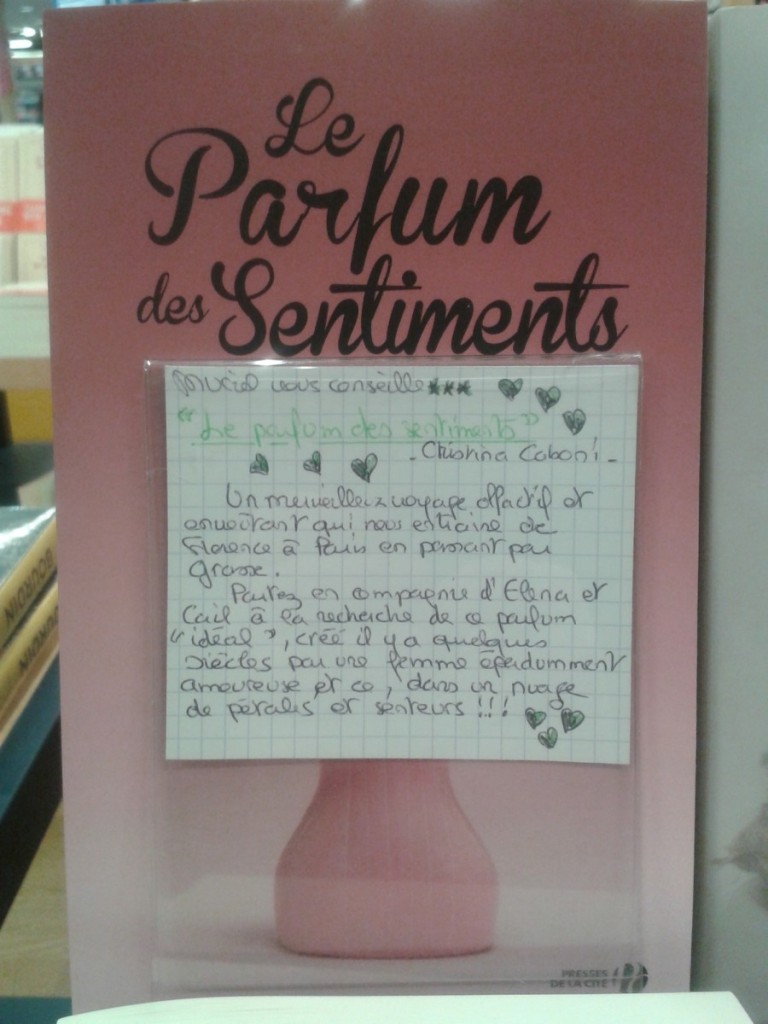 Le
Parfum
des Sentiments
Muriel vous conseille ***
"Le parfum des sentiments"
- Christina Caboni -
Un merveilleux voyage olfactif et
envoûtant qui nous entraine de
Florence à Paris en passant par
Grasse.
Partez en compagnie d'Elena et
Cail à la recherche de ce parfum
"idéal", créé il y a quelques
siècles par une femme éperdumment
amoureuse et ce, dans un nuage
de pétales et senteurs !!!
PRESSES
DE LA CITÉ
BOURDIN
BOURDIN